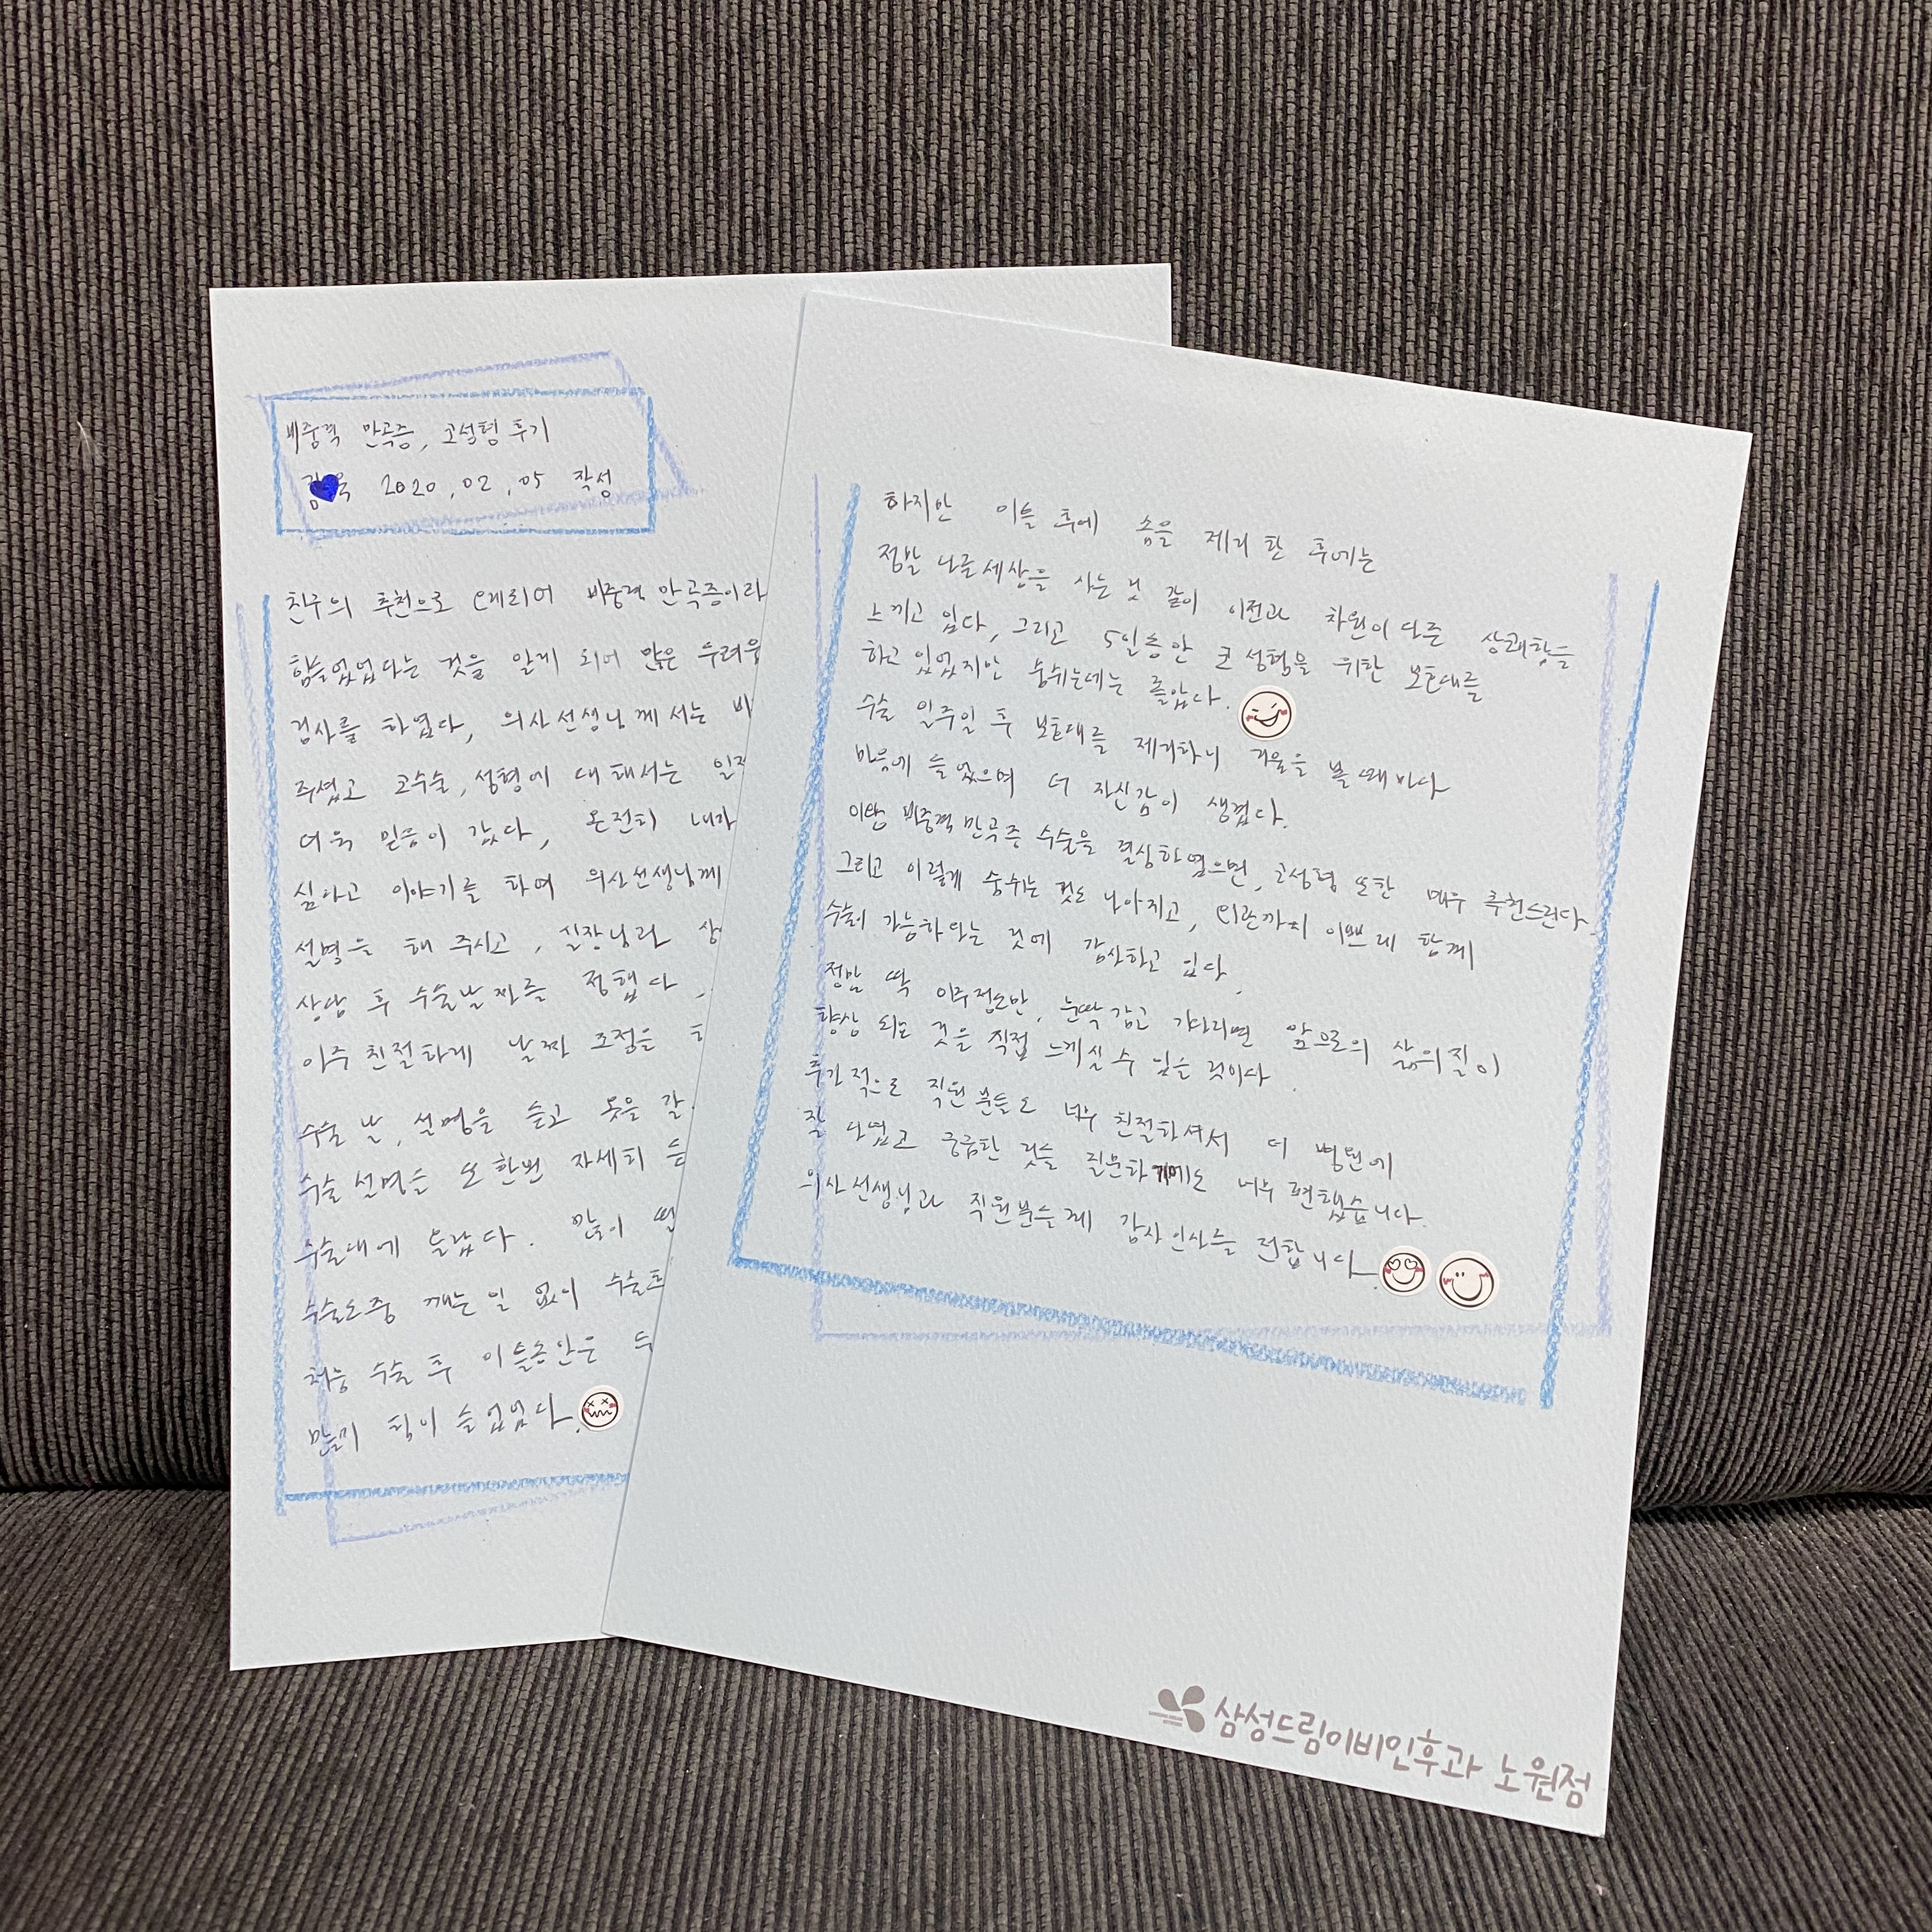 비중격 만곡증, 코성형 후기
2020.02.05 작성
친구의 추천으로 비중격 만곡증이라
힘들었었다는 것을 알게 되어 많은 두려움
검사를 하였다, 의사선생님께서는 비
주셨고 코수술, 성형에 대해서는 일
더욱 믿음이 갔다, 온전히 내가
싶다고 이야기를 하며 의사선생님께
설명을 해 주시고, 실장님과 상
상담 후 수술날짜를 정했다.
아주 친절하게 날짜 조정을
수술 날, 설명을 듣고 옷을 갈
수술 설명을 또 한번 자세히 듣
수술대에 올랐다. 많이 떨
수술도중 깨는 일 없이 수술후
처음 수술 후 이틀동안은
많이 힘이 들었었다.
하지만 이틀 후에 솜을 제거 한 후에는
정말 다른세상을 사는 것 같이 이전과 차원이 다른 상쾌함을
느끼고 있다, 그리고 5일동안 코 성형을 위한 보호대를
하고 있었지만 숨쉬는데는 좋았다.
수술 일주일 후 보호대를 제거하니 거울을 볼 때마다
마음에 들었으며 더 자신감이 생겼다.
이왕 비중격 만곡증 수술을 결심하였으면, 코성형 또한 매우 추천드린다.
그리고 이렇게 숨쉬는 것도 나아지고, 외관까지 이쁘게 함께
수술이 가능하다는 것에 감사하고 있다.
정말 딱 이주정도만, 눈딱 감고 기다리면 앞으로의 삶의 질이
향상 되는 것을 직접 느끼실 수 있을 것이다.
추가적으로 직원 분들도 너무 친절하셔서 더 병원에
잘 다녔고 궁금한 것들 질문하기에도 너무 편했습니다.
의사선생님과 직원분들께 감사인사를 전합니다.
삼성드림이비인후과 노원점